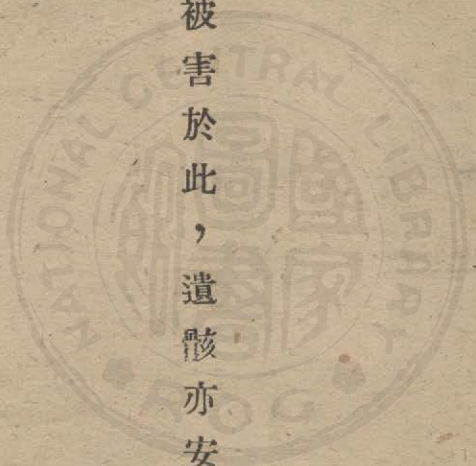 被害於此，遺骸亦安
NATIONAL CENTRAL LIBRARY
國家圖書館
R.O.C.